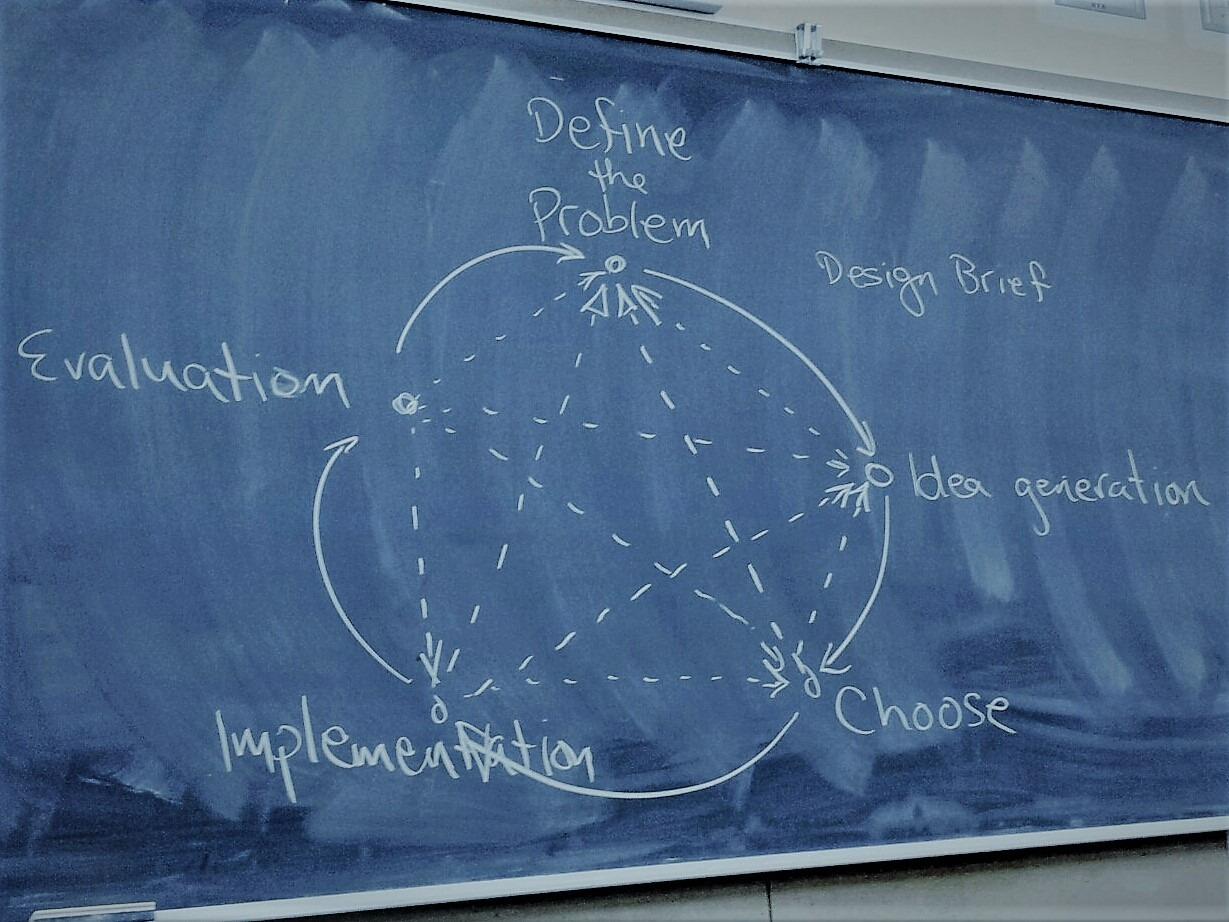 Define
the
Problem
Design Brief
Evaluation
Idea generation
Choose
Implementation